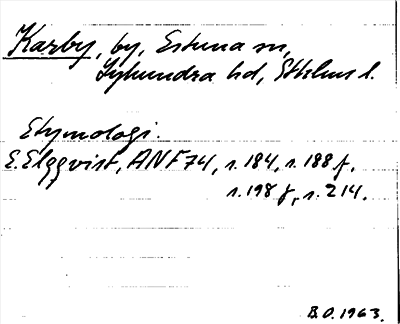 Karby, by, Estuna sn,
Lyhundra hd, Sthlms l.
Etymologi.
E. Elqqvist, ANF 74, s. 184, s. 188 f,
s. 198 f, s. 214.
B.O. 1963.